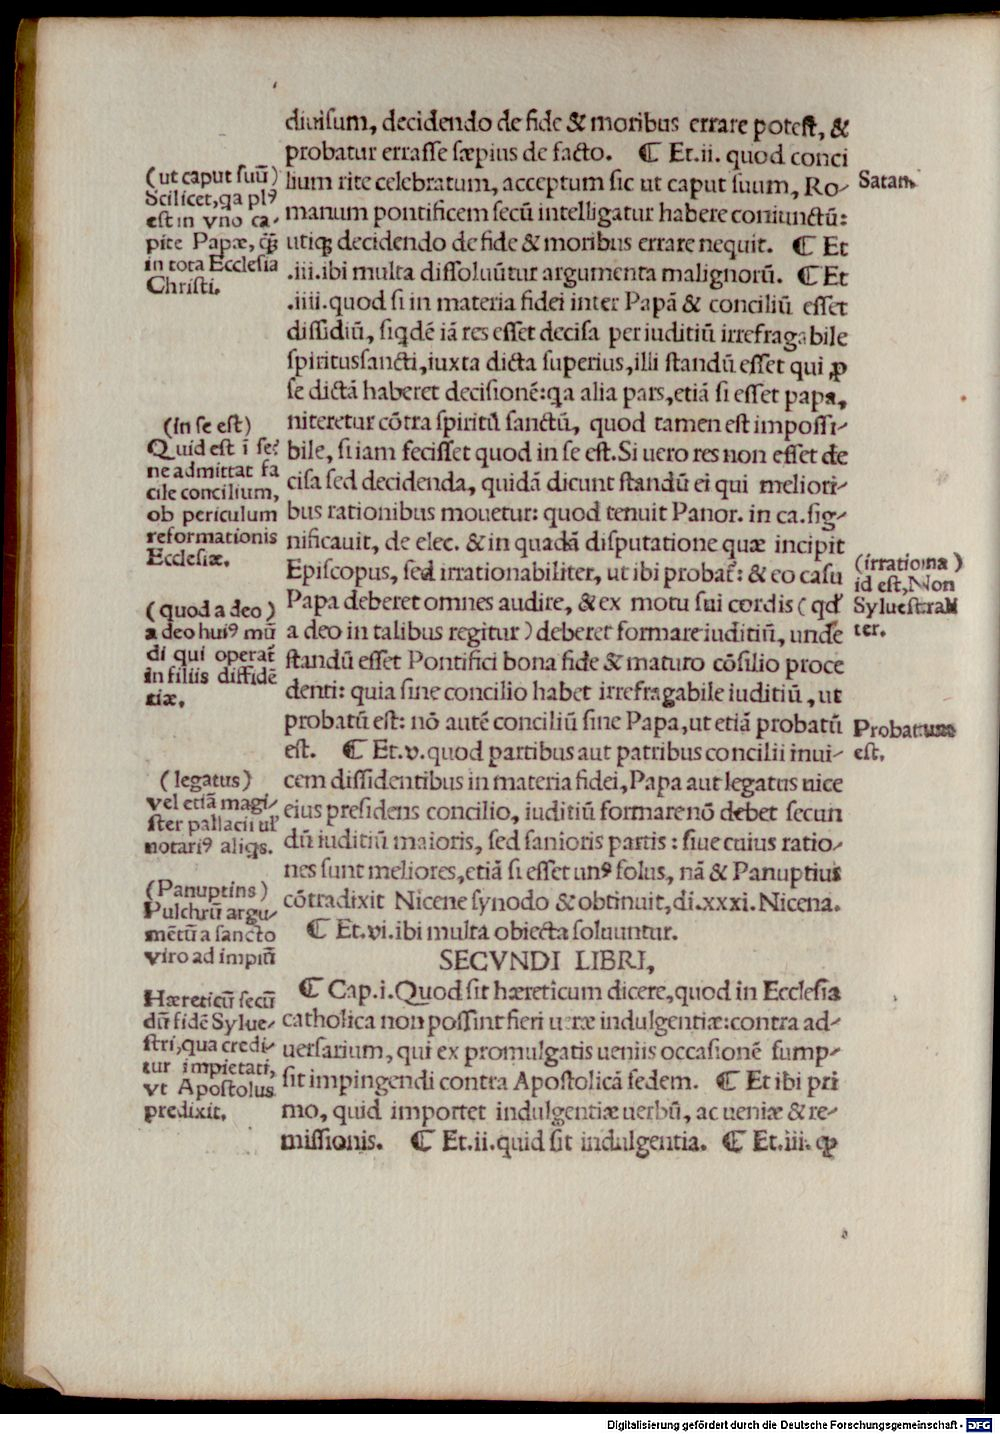 diuisum, decidendo de fide & moribus errare potest, &
probatur errasse sæpius de facto. ¶ Et.ii. quod conci
lium rite celebratum, acceptum sic ut caput suum, Ro-
manum pontificem secū intelligatur habere coniunctū:
utiqꝫ decidendo de fide & moribus errare nequit. ¶ Et
.iii.ibi multa dissoluūtur argumenta malignorū. ¶ Et
.iiii.quod si in materia fidei inter Papā & conciliū esset
dissidiū, siqdē iā res esset decisa per iuditiū irrefragabile
spiritussancti,iuxta dicta superius,illi standū esset qui ꝓ
se dictā haberet decisionē:qa alia pars,etiā si esset papa,
niteretur cōtra spiritū sanctū, quod tamen est impossi-
bile, si iam fecisset quod in se est.Si uero res non esset de
cisa sed decidenda, quidā dicunt standū ei qui meliori-
bus rationibus mouetur: quod tenuit Panor. in ca.sig-
nificauit, de elec. & in quadā disputatione quæ incipit
Episcopus, sed irrationabiliter, ut ibi probat᷑: & eo casu
Papa deberet omnes audire, & ex motu sui cordis ( qđ
a deo in talibus regitur ) deberet formare iuditiū, unde
standū esset Pontifici bona fide & maturo cōsilio proce
denti: quia sine concilio habet irrefragabile iuditiū, ut
probatū est: nō autē conciliū sine Papa,ut etiā probatū
est. ¶ Et.v.quod partibus aut patribus concilii inui-
cem dissidentibus in materia fidei,Papa aut legatus uice
eius presidens concilio, iuditiū formare nō debet secun
dū iuditiū maioris, sed sanioris partis : siue cuius ratio-
nes sunt meliores,etiā si esset unꝰ solus, nā & Panuptius
cōtradixit Nicene synodo & obtinuit,di.xxxi.Nicena.
¶ Et.vi.ibi multa obiecta soluuntur.
SECVNDI LIBRI,
¶ Cap.i.Quod sit hæreticum dicere,quod in Ecclesia
catholica non possint fieri ueræ indulgentiæ:contra ad-
uersarium, qui ex promulgatis ueniis occasionē sump-
sit impingendi contra Apostolicā sedem. ¶ Et ibi pri
mo, quid importet indulgentiæ uerbū, ac ueniæ & re-
missionis. ¶ Et.ii.quid sit indulgentia. ¶ Et.iii. ꝙ
(ut caput suū)
Scilicet,qa plꝰ
est in vno ca-
pite Papæ, q̄ꝫ
in tota Ecclesia
Christi.
(in se est)
Quid est ī se?
ne admittat fa
cile concilium,
ob periculum
reformationis
Ecclesiæ.
(quod a deo)
a deo huiꝰ mū
di qui operat᷑
in filiis diffidē
tiæ.
(legatus)
vel etiā magi-
ster pallacii ul'
notariꝰ aliqs.
(Panuptins)
Pulchrū argu-
mētū a sancto
viro ad impiū
Hæreticū secū
dū fidē Sylue-
stri,qua credi-
tur impietati,
vt Apostolus
predixit.
Satan.
(irrationa)
id est, Non
Syluestrali
ter.
Probatum
est.
Digitalisierung gefördert durch die Deutsche Forschungsgemeinschaft - DFG